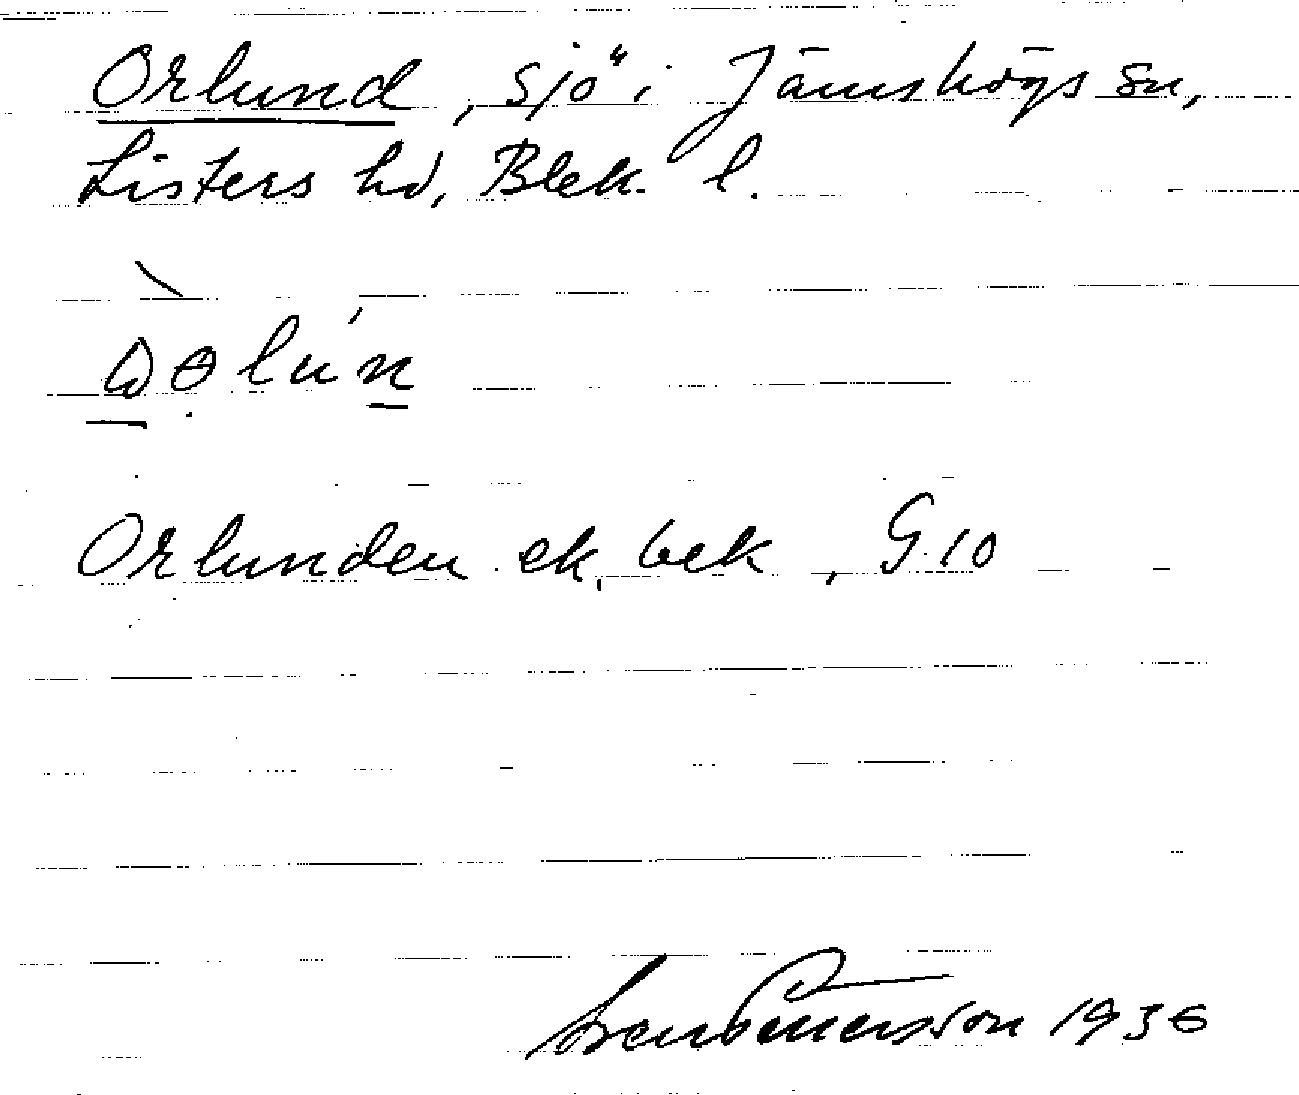 Orlund, sjö i Jämshögs sn,
Listers hd, Blek. l.
Orlunden ek. bek, G 10
1936